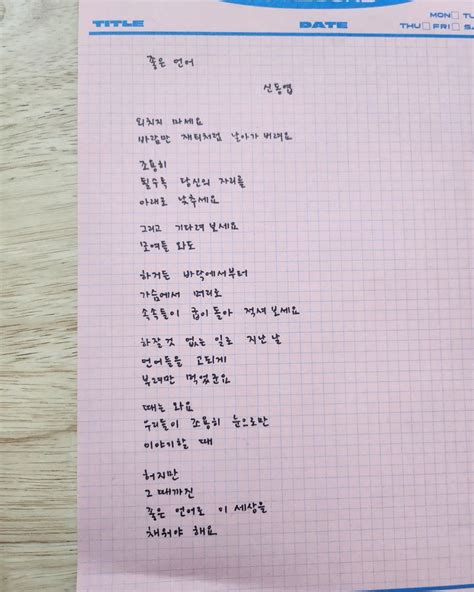 TITLE DATE MON TU
THU FRI SA
좋은 언어
신동엽
외치지 마세요
바람만 재티처럼 날아가 버려요
조용히
될수록 당신의 자리를
아래로 낮추세요
그리고 기다려 보세요
모여들 와도
하거든 바닥에서부터
가슴에서 머리로
속속들이 굽이돌아 적셔 보세요
하잘것 없는 일로 지난 날
언어들을 고되게
부려만 먹었군요
때는 와요
우리들이 조용히 눈으로만
이야기할 때
허지만
그 때까진
좋은 언어로 이 세상을
채워야 해요